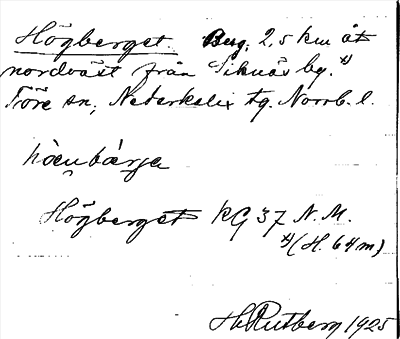 Högberget. Berg, 2,5 km åt
nordväst från Siknäs by. x)
Töre sn, Nederkalix tg. Norrb. l.
hȯ̀u̯bár̯ja
Högberget RG 37 N.M.
x)(H. 64 m)
H. Rutberg 1925